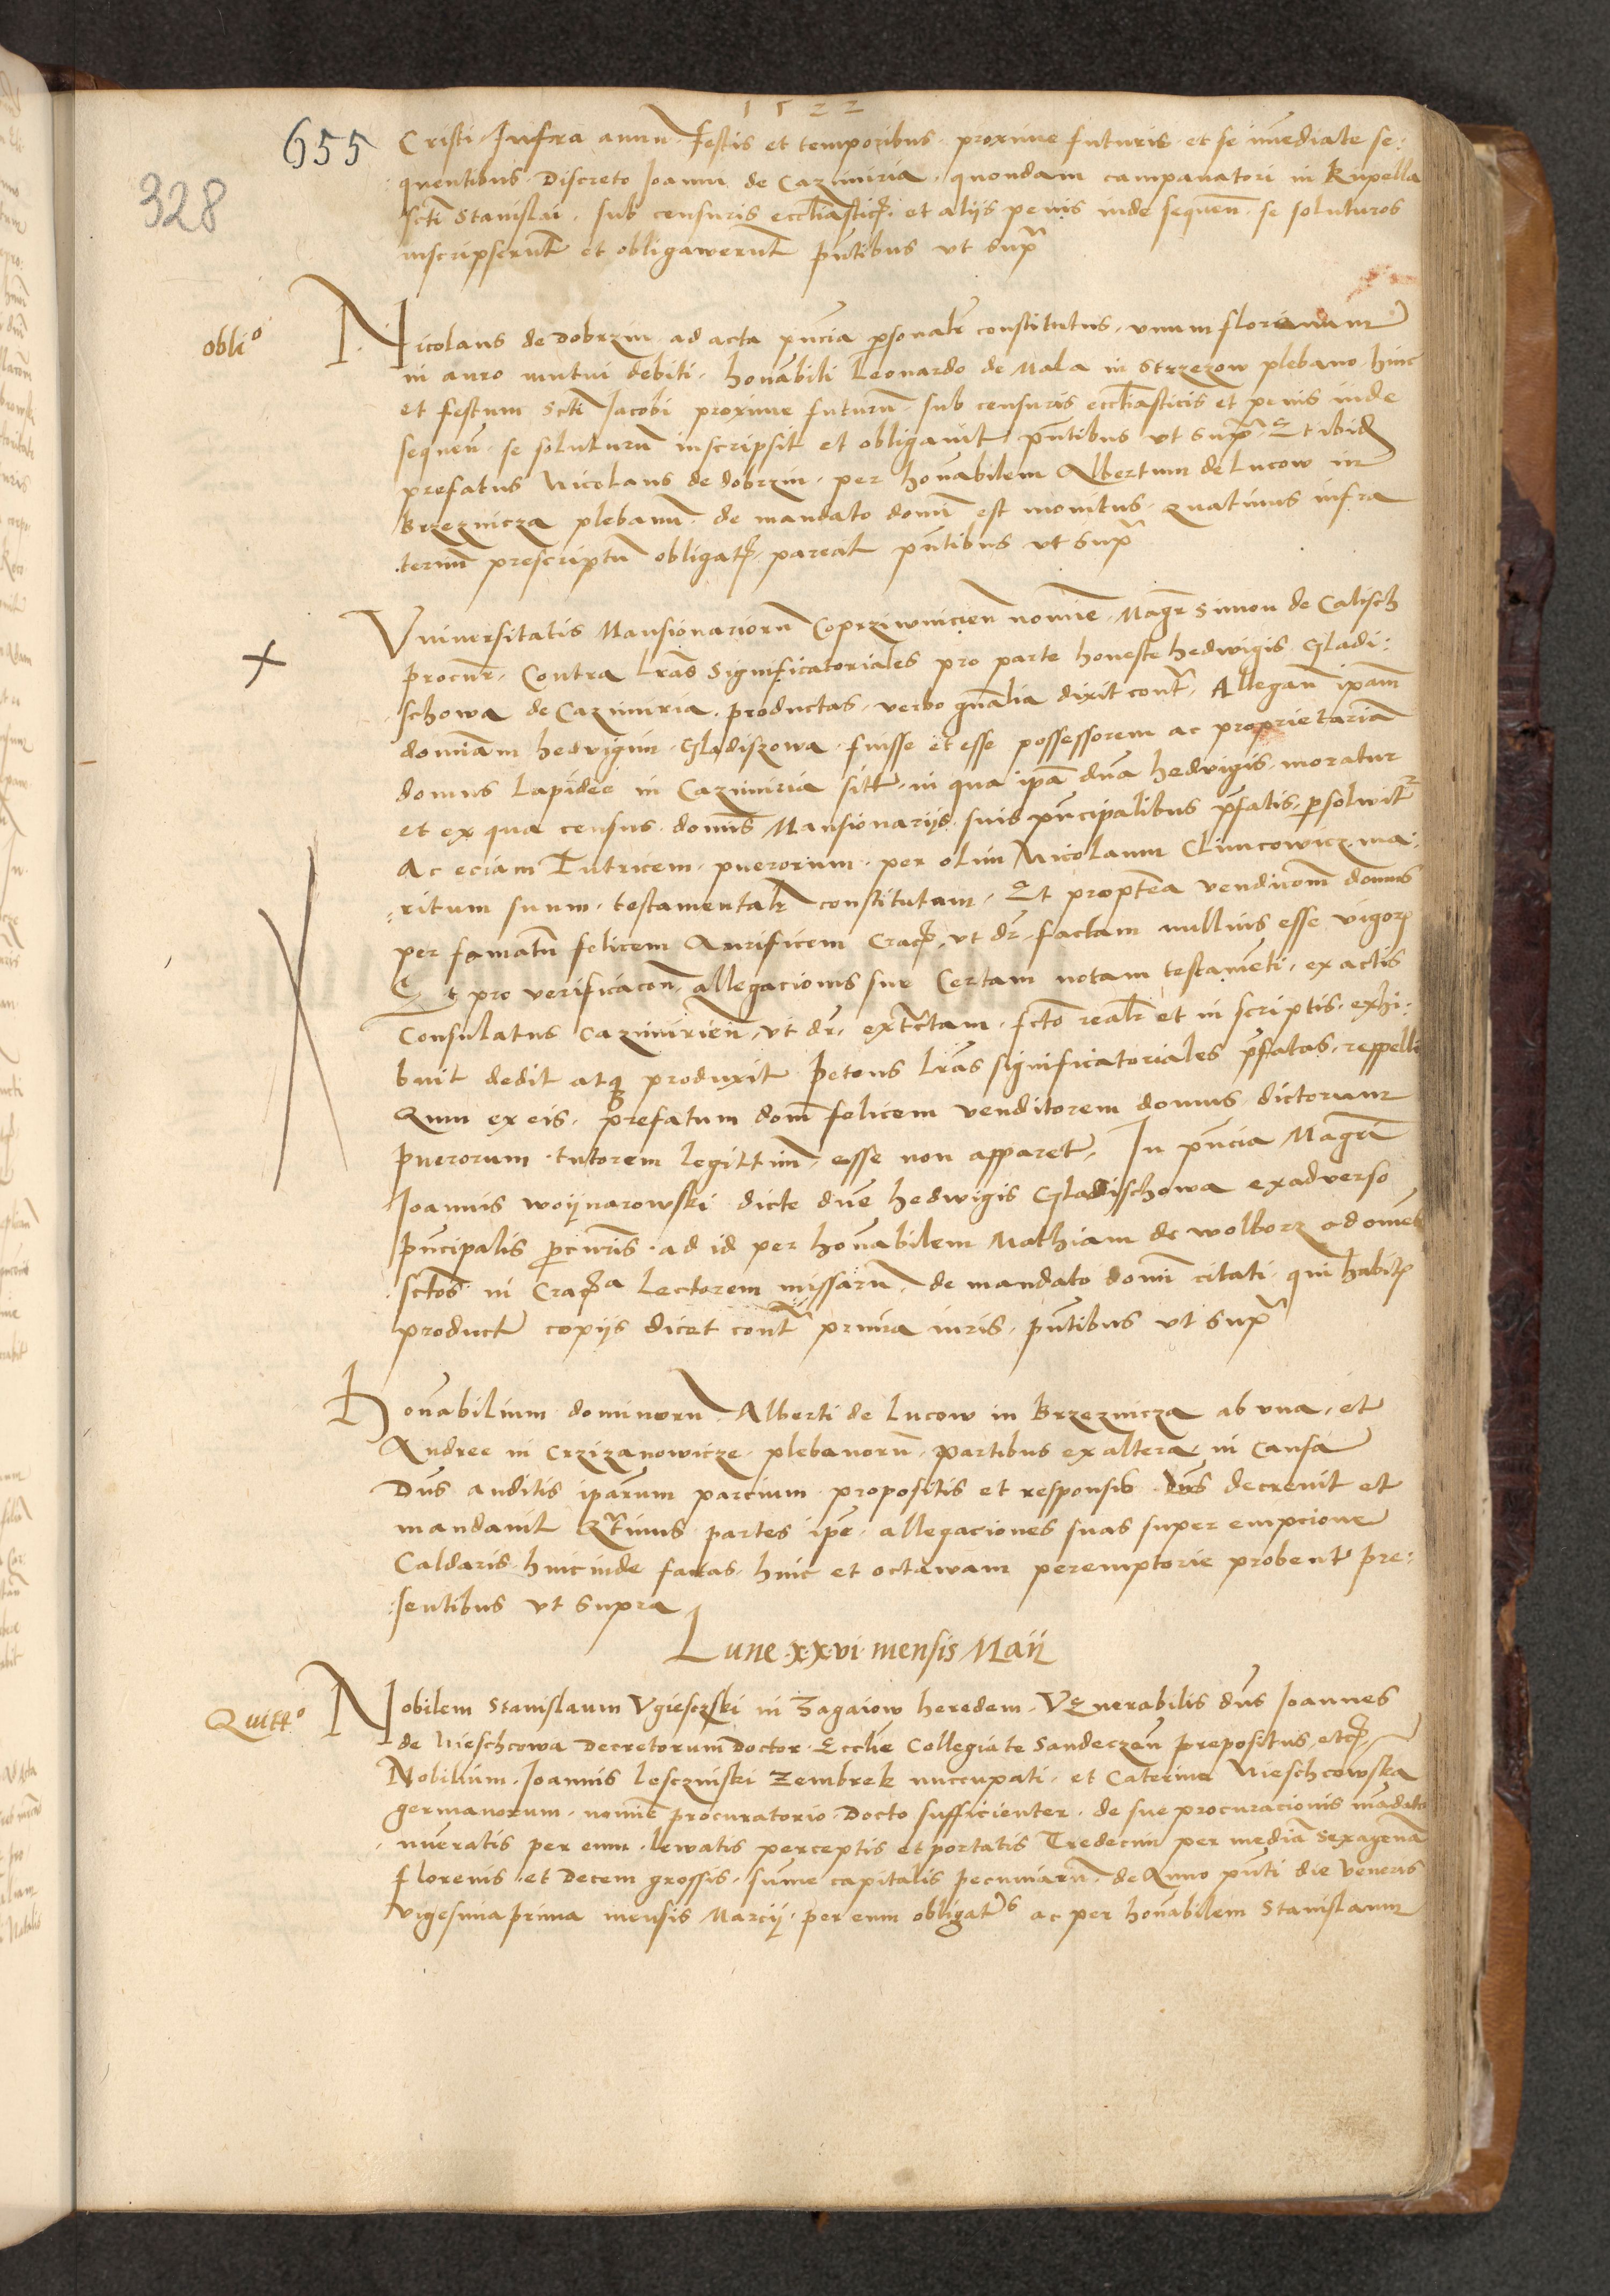 1522
655
328
Cristi Infra annu festis et temporibus proxime futuris et se imediate se:
quentibus Discreto Joanni de Cazimiria quondam campanatori in Rupella
scti Stanislai sub censuris ecclīastic et alijs penis inde sequen̄ se soluturos
inscripserunt et obligawerunt pn̄tibus vt supra
obli°
Nicolaus de Dobrzin ad acta pn̄cia psonalr̄ constitutus vnum florenum
in auro mutui debiti honābili Leonardo de Mala in Strzezow plebano hinc
et festum Scti Jacobi proxime futurū sub censuris ecclīasticis et penis inde
sequen̄ se soluturū inscripsit et obligauit pn̄tibus vt supra Et ibid
prefatus Nicolaus de dobrzin per honābilem Albertum de Lucow in
Brzeznicza plebanū de mandato domī est monitus quatinus infra
termī prescriptū obligat pareat pn̄tibus vt supra
Vniuersitatis Mansionariorū Coprziwnicien̄ nomīe Magr̄ Simon de Calisch
procur̄ Contra lrās Significatoriales pro parte honeste hedwigis Gladi:
schowa de Cazimiria productas verbo gn̄alia dixit contra Allegan̄ ipam̄
domīam hedwigim Gladiszowa fuisse et esse possessorem ac proprietariā
domus Lapidee in Cazimiria sitt in qua ipā dn̄a hedwigis moratur
et ex qua census domīs Mansionarijs suis pn̄cipalibus p̄fatis psolwitr
Ac eciam Tutricem puerorum per olim Nicolaum Climcowicz ma:
ritum suum testamentalr̄ constitutam Et proptea vendicōm domus
per famatū felicem Aurificem Crac vt dr̄ factam nullius esse vigor
Et pro verificacōn allegacionis sue Certam notam testamēti ex actis
Consulatus Cazimirien̄ vt dr̄ extractam scto realr̄ et in scriptis exhi:
buit dedit atq produxit Petens lrās significatoriales p̄fatas reppelli
Qum ex eis prefatum dom̄ felicem venditorem domus dictorum
puerorum tutorem legittim̄ esse non apparet In pn̄cia Magr̄i
Joannis woijnarowski dicte dn̄e hedwigis Gladischowa ex adverso
pn̄cipalis pcuris ad id per honābilem Mathiam de wolborz ad omēs
sctos in Crac a Lectorem missarū de mandato domī citati qui habit
product copijs dicet contra prima iuris pn̄tibus vt supra
Honābilium dominorū Alberti de Lucow in Brzeznicza ab vna et
Andree in Crzizanowicze plebanorū partibus ex altera in Causa
Dn̄s auditis ipārum parcium propositis et responsis dn̄s decrevit et
mandauit qtinus partes ipē allegaciones suas super empcione
Caldaris hincinde factas hinc et octawam peremptorie probent pre:
sentibus vt supra
Lune xxvi mensis Maij
Quitt°
Nobilem Stanislaum Vgieszki in Zagaiow heredem Venerabilis dn̄s Joannes
de Nieschcowa Decretorum Doctor Ecclīe Collegiate Sandeczen̄ prepositus etc
Nobilium Joannis Lesczinski Zembrek nuccupati et Caterine Nieschcowska
germanorum nomīe procuratorio Docto sufficienter de sue procuracionis mādato
nūeratis per eum lewatis perceptis et portatis Tredecim per mediā sexagenā
florenis et Decem grossis sūme capitalis pecuniarū de Anno pn̄ti die Veneris
vigesima prima mensis Marcij per eum obligatis ac per honābilem Stanislaum